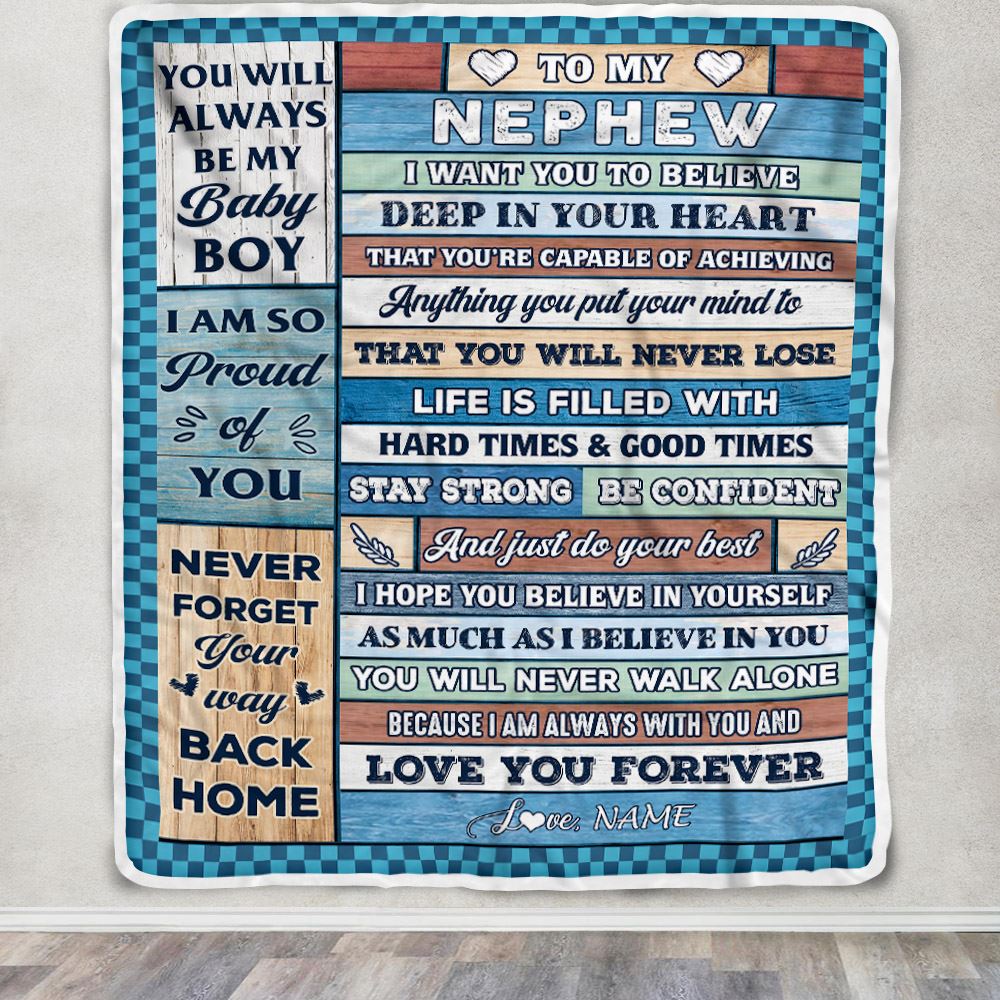 YOU WILL
ALWAYS
BE MY
Baby
BOY
I AM SO
Proud
of
YOU
NEVER
FORGET
Your
way
BACK
HOME
TO MY
NEPHEW
I WANT YOU TO BELIEVE
DEEP IN YOUR HEART
THAT YOU'RE CAPABLE OF ACHIEVING
Anything you put your mind to
THAT YOU WILL NEVER LOSE
LIFE IS FILLED WITH
HARD TIMES & GOOD TIMES
STAY STRONG BE CONFIDENT
And just do your best
I HOPE YOU BELIEVE IN YOURSELF
AS MUCH AS I BELIEVE IN YOU
YOU WILL NEVER WALK ALONE
BECAUSE I AM ALWAYS WITH YOU AND
LOVE YOU FOREVER
Love, NAME